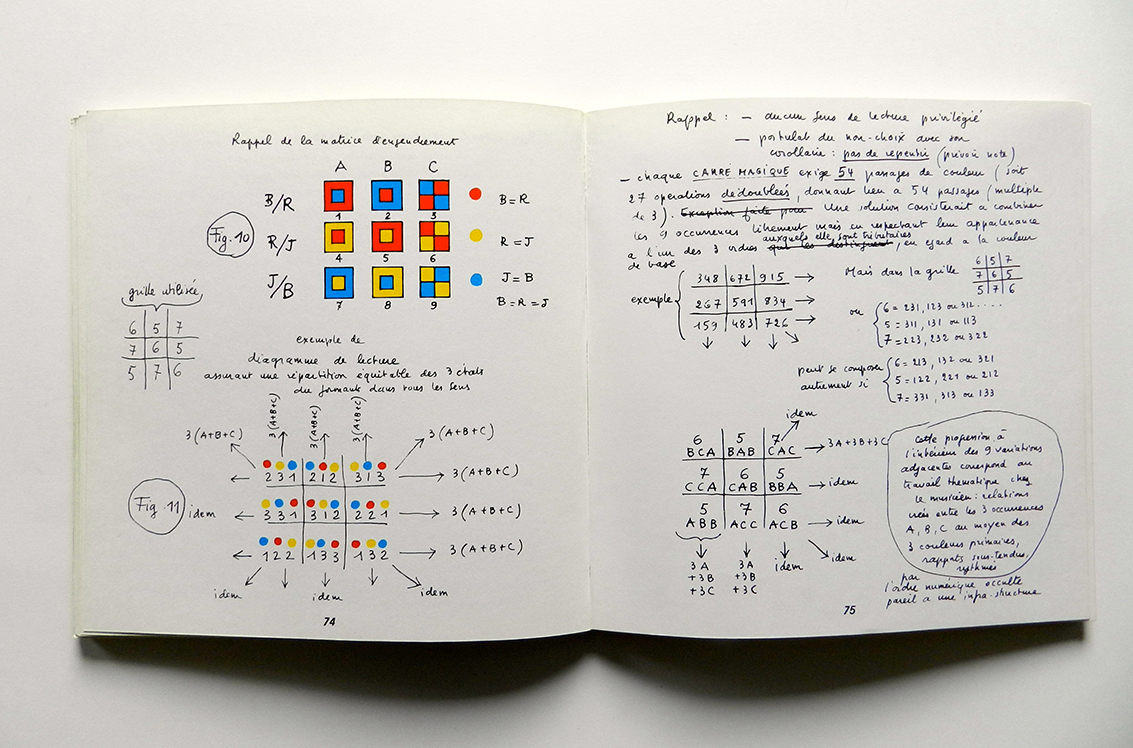 Rappel de la matrice d'engendrement
A B C
B/R
1 2 3
B = R
Fig. 10
R/J
4 5 6
R = J
J/B
7 8 9
J = B
B = R = J
grille utilisée
6 5 7
7 6 5
5 7 6
exemple de
diagramme de lecture
assurant une répartition équitable des 3 états
du formant dans tous les sens
3(A+B+C) 3(A+B+C) 3(A+B+C)
3(A+B+C) 3(A+B+C)
2 3 1 2 1 2 3 1 3
3(A+B+C)
Fig. 11
idem
3 3 1 3 1 2 2 2 1
3(A+B+C)
1 2 2 1 3 3 1 3 2
3(A+B+C)
idem idem idem
74
Rappel : — aucun sens de lecture privilégié
— postulat du non-choix avec son
corollaire : pas de repentir (prévoir note)
— chaque CARRÉ MAGIQUE exige 54 passages de couleur (soit
27 opérations dédoublées, donnant lieu à 54 passages (multiple
de 3). Exception faite pour Une solution consisterait à combiner
les 9 occurences librement mais en respectant leur appartenance
auxquels elle sont tributaires
à l'un des 3 ordres qui les distinguent, en égard à la couleur
de base
exemple
348 672 915
267 591 834
159 483 726
Mais dans la grille
6 5 7
7 6 5
5 7 6
ou
6 = 231, 123 ou 312 ....
5 = 311, 131 ou 113
7 = 223, 232 ou 322
peut se composer
autrement si
6 = 213, 132 ou 321
5 = 122, 221 ou 212
7 = 331, 313 ou 133
idem
6 5 7
BCA BAB CAC
3A+3B+3C
7 6 5
CCA CAB BBA
idem
5 7 6
ABB ACC ACB
idem
3A 3A idem idem
+3B +3B
+3C +3C
Cette progression à
l'intérieur des 9 variations
adjacentes correspond au
travail thématique chez
le musicien : relations
créés entre les 3 occurences
A, B, C au moyen des
3 couleurs primaires,
rapports sous-tendus,
rythmés
par
l'ordre numérique occulte
pareil à une infra-structure
75